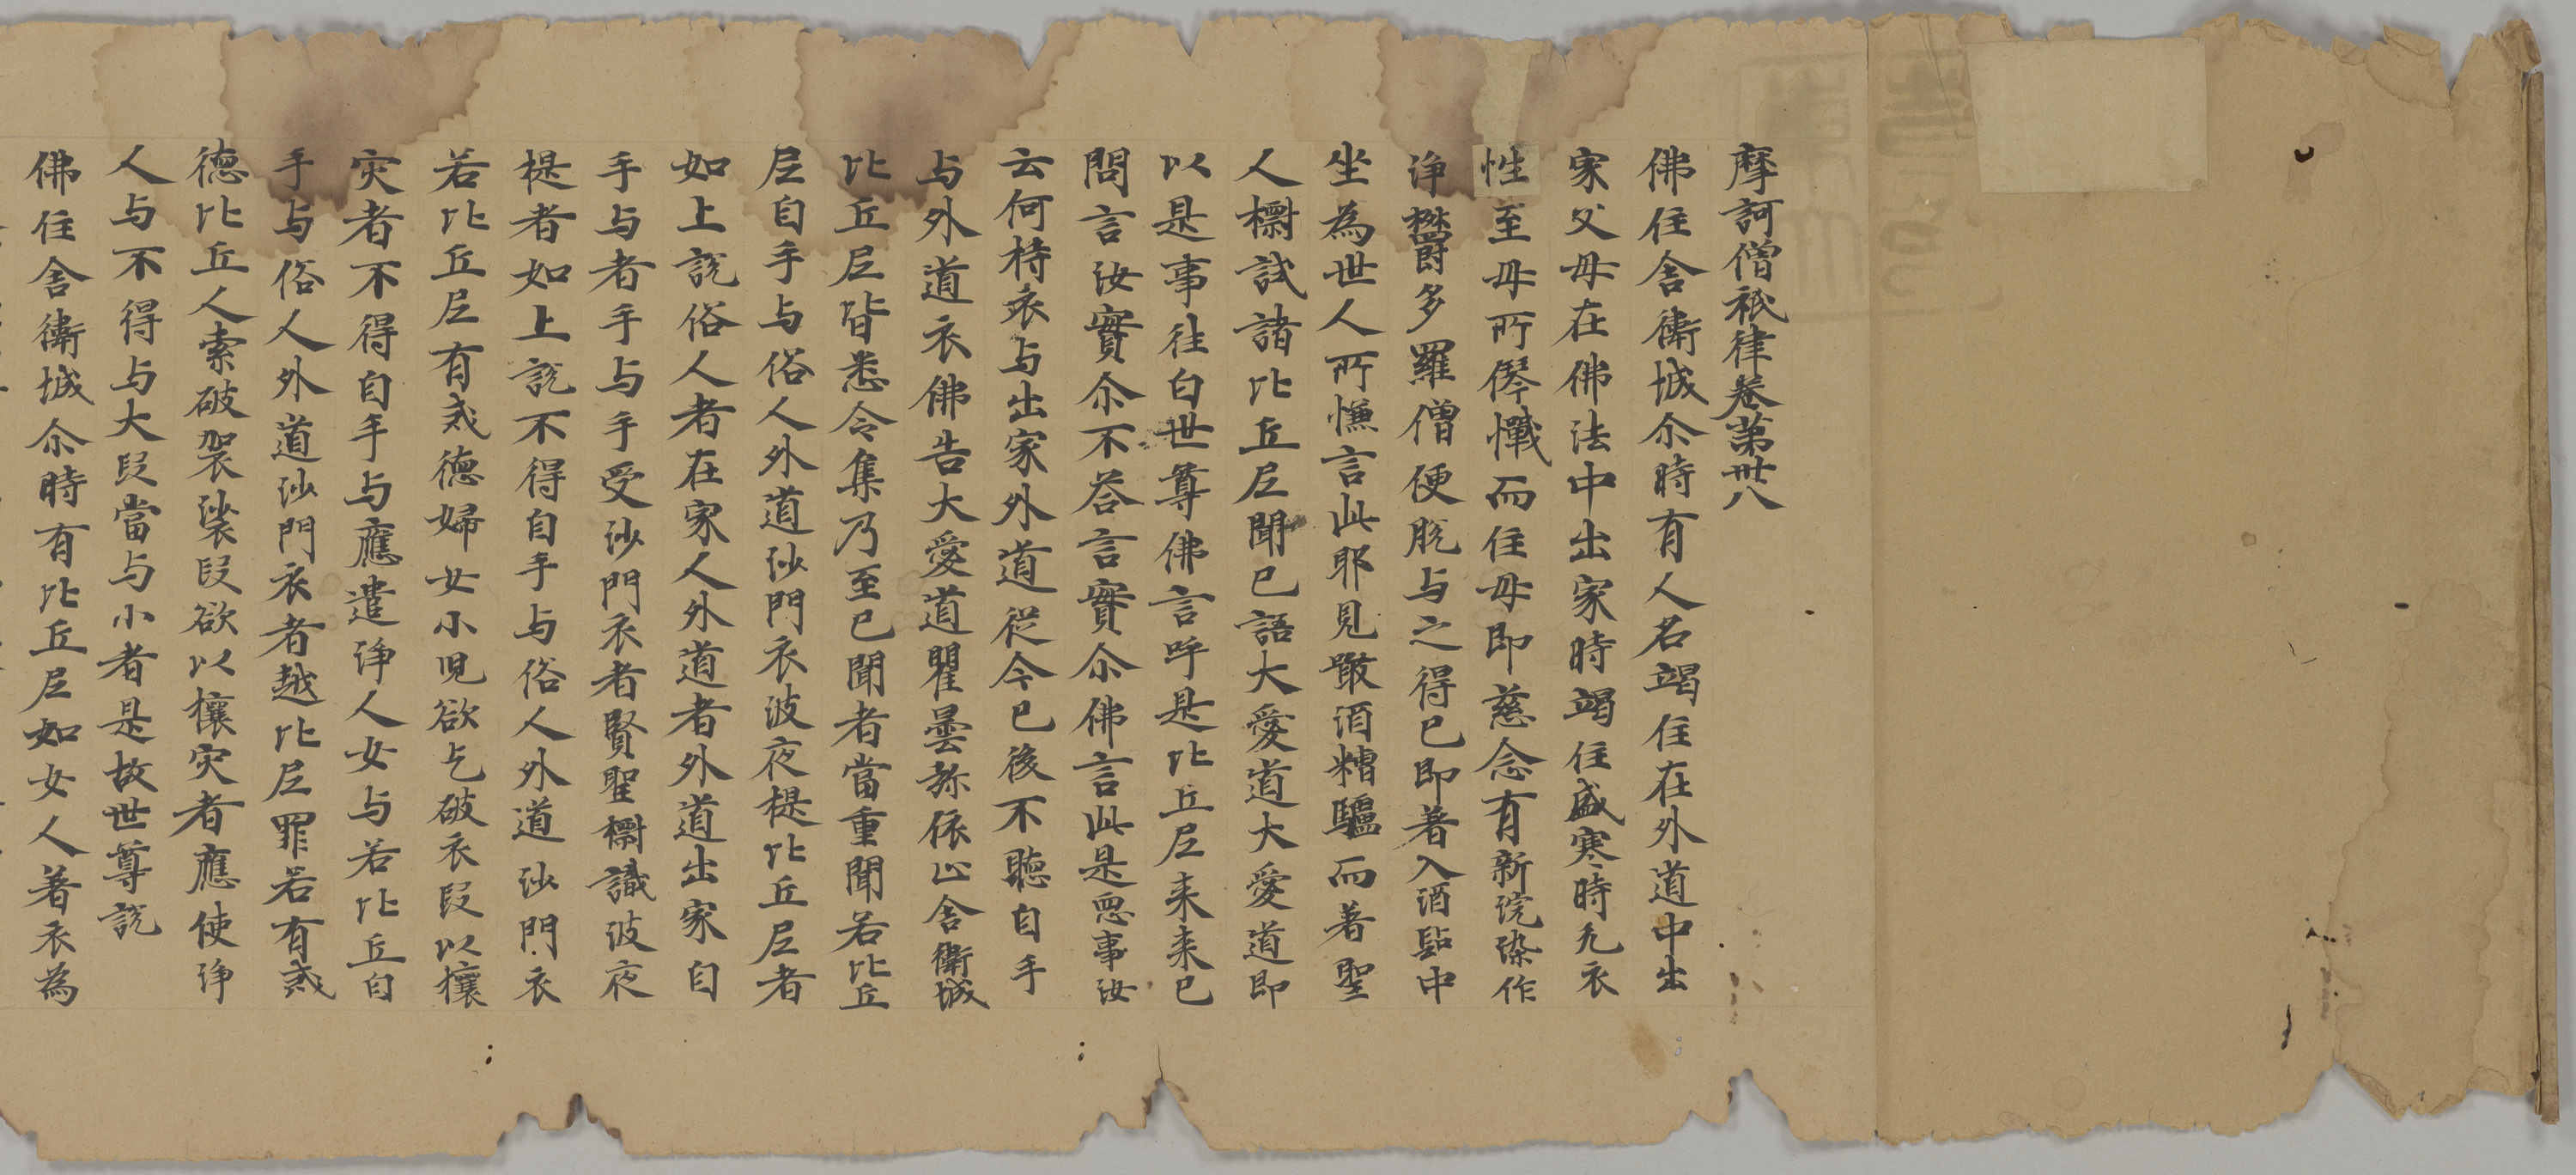 摩訶僧祇律卷第卅八
佛住舍衛城尒時有人名竭住在外道中出
家父母在佛法中出家時竭住盛寒時无衣
性至母所僁懺而住母即慈念有新浣染作
淨欝多羅僧便脫与之得已即著入酒店中
坐為世人所慊言此耶見噉酒糟驢而著聖
人㯹試諸比丘尼聞已語大愛道大愛道即
以是事往白世尊佛言呼是比丘尼来来已
問言汝實尒不荅言實尒佛言此是惡事汝
云何持衣与出家外道從今已後不聽自手
与外道衣佛告大愛道瞿曇弥依止舍衛城
比丘尼皆悉令集乃至已聞者當重聞若比丘
尼自手与俗人外道沙門衣波夜提比丘尼者
如上說俗人者在家人外道者外道出家自
手与者手与手受沙門衣者賢聖㯹識波夜
提者如上說不得自手与俗人外道沙門衣
若比丘尼有戒德婦女小兒欲乞破衣段以攘
灾者不得自手与應遣淨人女与若比丘自
手与俗人外道沙門衣者越比尼罪若有戒
德比丘人索破袈裟段欲以攘灾者應使淨
人与不得与大段當与小者是故世尊說
佛住舍衛城尒時有比丘尼如女人著衣為